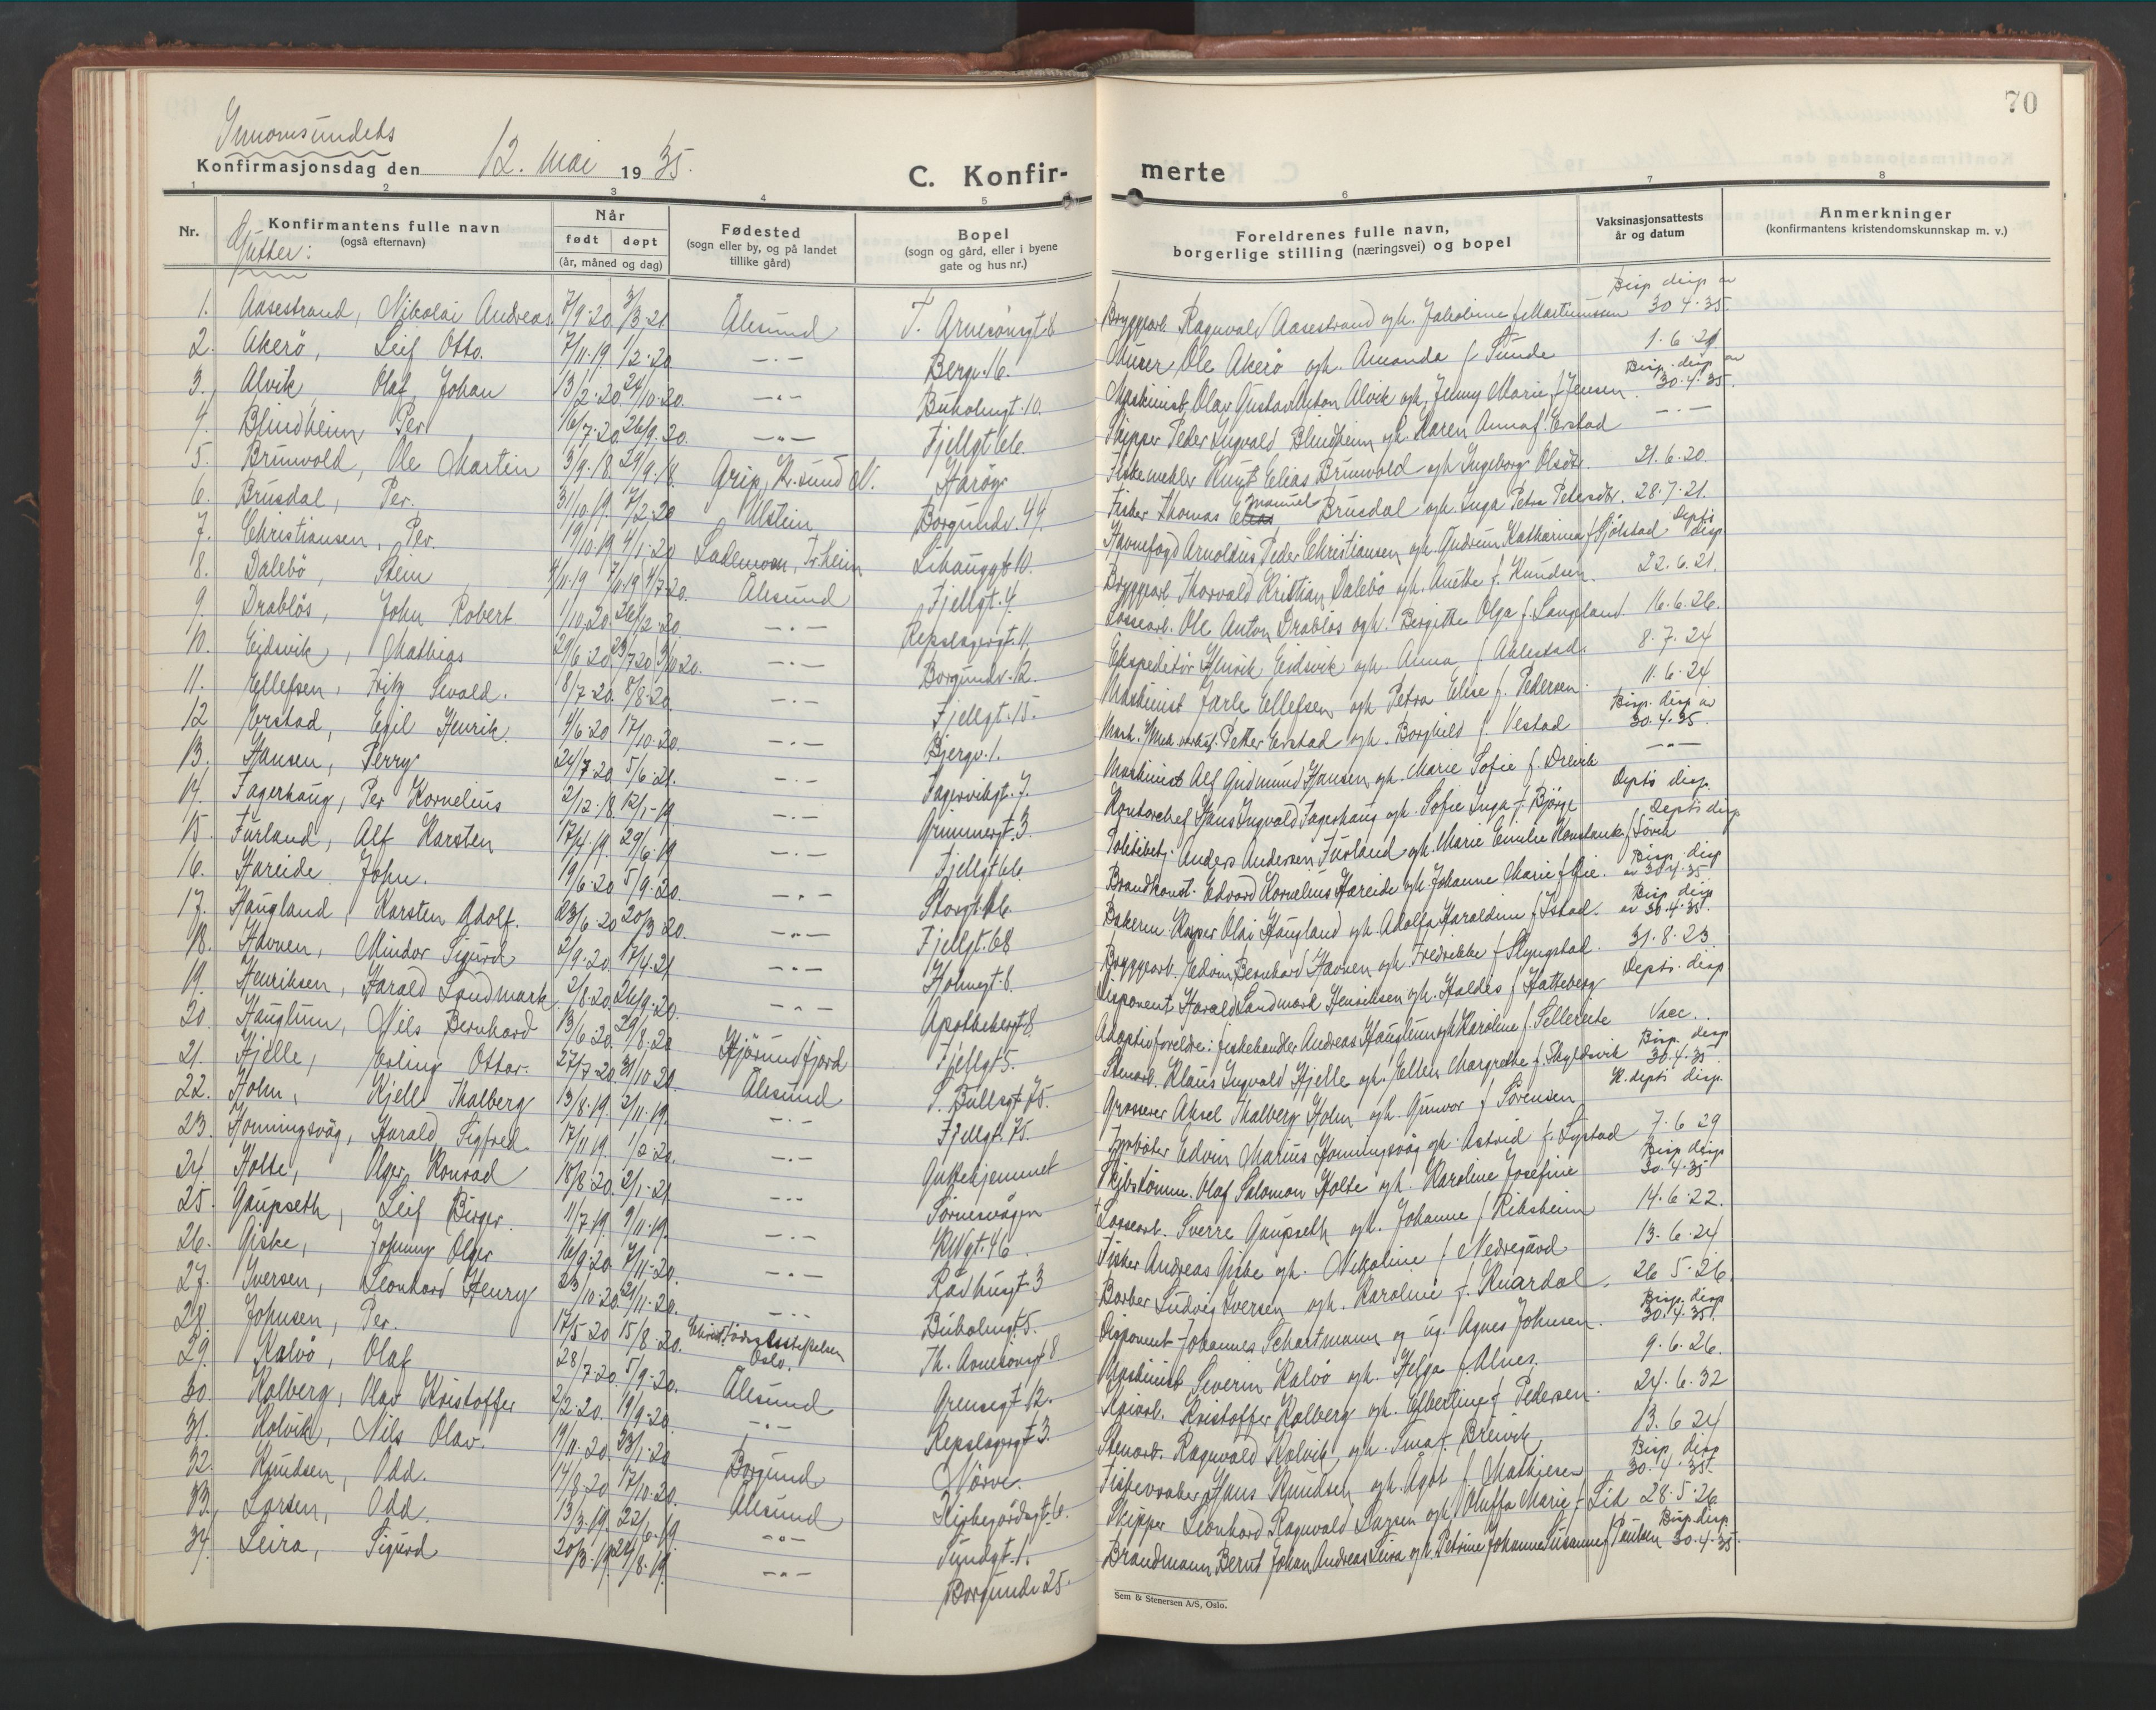 70
Innomsundets
Konfirmasjonsdag den 12. mai 1935.
C. Konfir-merte
1 2 3 4 5 6 7 8
Nr. Konfirmantens fulle navn (også efternavn) Når født døpt (år, måned og dag) Fødested (sogn eller by, og på landet tillike gård) Bopel (sogn og gård, eller i byene gate og hus nr.) Foreldrenes fulle navn, borgerlige stilling (næringsvei) og bopel Vaksinasjonsattests år og datum Anmerkninger (konfirmantens kristendomskunnskap m. v.)
Gutter:
1. Aasestrand, Nikolai Andreas 7/9-20 3/3-21 Ålesund T. Arnesöngt 8 Bryggearb. Ragnvald Aasestrand og h. Jakobine f. Martinussen Bisp. disp. av 30.4.35.
2. Akerö, Leif Otto. 7/11-19 1/2-20 -"- Bergv. 16. Murer Ole Akerö og h. Amanda f. Sunde 1.6.21
3. Alvik, Olaf Johan 13/2-20. 24/10-20. -"- Buholmgt. 10. Maskinist Olav Gustav Anton Alvik og h. Jenny Marie f. Jensen. Bisp. disp. av 30.4.35.
4. Blindheim, Per 16/7-20. 26/9-20. -"- Fjellgt 66. Skipper Peder Ingvald Blindheim og h. Karen Anna f. Erstad -"-
5. Brunvold, Ole Martin 3/9-18 29/9-18. Grip, Kr.sund N. Haröy Fiskemekler Knut Elias Brunvold og h. Ingeborg Olsdtr. 21.6.20.
6. Brusdal, Per. 31/10-19. 17/2-20 Ulstein Borgundv. 44. Fisker Thomas Emanuel Brusdal og h. Inga Petra Petersdtr. 28.7.21.
7. Christiansen, Per. 19/10-19 4/1-20 Lademoen, Tr.heim Lihauggt 10. Havnefogd Arnoldus Peder Christiansen og h. Gudrun Katharina f. Sjölstad Dept's disp.
8. Dalebö, Stein 4/11-19 4/7-20. Ålesund Fjellgt. 4. Bryggearb. Thorvald Kristian Dalebö og h. Anette f. Knudsen. 22.6.21.
9. Drablös, John Robert 1/10-20. 26/12-20. -"- Repslagergt. 11. Lossearb. Ole Anton Drablös og h. Bergitte Olga f. Langeland 16.6.26.
10. Eidsvik, Mathias 29/6-20 3/10-20. -"- Borgundv. 12. Ekspeditör Henrik Eidsvik og h. Anna f. Aklestad. 8.7.24
11. Ellefsen, Fritz Sevald. 8/7-20. 8/8-20. -"- Fjellgt. 15. Maskinist Jarle Ellefsen og h. Petra Elise f. Pedersen. 11.6.24
12 Erstad, Egil Henrik 4/6-20 17/10-20. -"- Bjergv. 1. Petter Erstad og h. Borghild f. Vestad Bisp. disp. av 30.4.35.
13. Hansen, Perry 24/7-20 5/6-21. -"- Fagervikgt. 7. Maskinist Alf Gudmund Hansen og h. Marie Sofie f. Dreivik -"-
14. Fagerhaug, Per Kornelius 2/12-18. 12/1-19 -"- Grimmergt. 3. Kontorchef Hans Ingvald Fagerhaug og h. Sofie Inga f. Björge Dept's disp.
15. Furland, Alf Karsten 17/4-19. 29/6-19 -"- Fjellgt 66 Politibetj. Anders Andersen Furland og h. Marie Emilie Konstanse f. Sörvik Dept's disp
16. Hareide John. 19/6-20 5/9-20. -"- Storgt. 16. Brandkonst. Edvard Kornelius Hareide og h. Johanne Marie f. Gie. Bisp. disp av 30.4.35.
17. Haugland, Karsten Adolf. 23/6-20 20/3-20. -"- Fjellgt. 68 Bakerm. Kasper Olai Haugland og h. Adolfa Haraldine f. Istad. Bisp. disp av 30.4.35.
18. Havnen, Mindor Sigurd 2/9-20. 17/4-21 -"- Holmgt. 8. Bryggearb. Edvin Bernhard Havnen og h. Fredrikke f. Slyngstad. 31.8.23
19. Henriksen, Harald Landmark 2/8-20. 26/9-20. -"- Apothekergt 8. Disponent Harald Landmark Henriksen og h. Haldis f. Hatteberg Dept's. disp
20. Hauglum, Nils Bernhard 13/6-20. 29/8-20 Hjörundfjord Fjellgt 5. Adoptivforeldre: fiskehandler Andreas Hauglum og h. Karoline f. Sellereite Vacc.
21. Hjelle, Erling Ottar. 27/7-20. 31/10-20. Ålesund S. Bullsgt 75. Stenarb. Klaus Ingvald Hjelle og h. Ellen Margrethe f. Skylstvik Bisp. disp 30.4.35.
22. Holm, Kjell Thalberg 13/8-19. 2/11-19. -"- Fjellgt. 75. Grosserer Aksel Thalberg Holm og h. Gunvor f. Sörensen K. dept's disp.
23. Honningsvåg, Harald Sigfred. 17/11-19. 1/2-20. -"- Guttehjemmet Fyrböter Edvin Marius Honningsvåg og h. Astrid f. Systad 7.6.29
24 Holte, Olger Konrad 18/8-20. 2/1-21 -"- Sörnesvågen Skibstömm. Olaf Salomon Holte og h. Karoline Josefine Bisp. disp 30.4.35
25. Gaupseth, Leif Birger. 11/7-19. 9/11-19. -"- KWgt. 46. Lossearb. Sverre Gaupseth og h. Johanne f. Ribsheim 14.6.22.
26. Giske, Johnny Olger 16/9-20. 7/11-20. -"- Rådhusgt. 3 Fisker Andreas Giske og h. Nikoline f. Nedregård 13.6.24
27. Iversen, Leonhard Henry 23/10-20. 21/11-20. -"- Buholmgt. 5. Barber Ludvig Iversen og h. Karoline f. Knardal. 26.5.26.
28. Johnsen, Per. 17/5-20 15/8-20. Oslo. Th. Arnesönsgt 8 Disponent Johannes Schartmann og ug. Agnes Johnsen. Bisp. disp 30.4.35.
29. Kalvö, Olaf 28/7-20. 5/9-20. Ålesund Grensegt 12. Maskinist Severin Kalvö og h. Helga f. Alnes. 9.6.26.
30. Kolberg, Olav Kristoffer 2/2-20. 19/9-20. -"- Repslagergt 3. Kaiarb. Kristoffer Kolberg og h. Elbertine f. Pedersen. 24.6.32
31. Kolvik, Nils Olav. 19/11-20. 23/1-20 Borgund Nörve. Stenarb. Ragnvald Kolvik og h. Sina f. Breivik. 13.6.24
32. Knudsen, Odd. 14/8-20 17/10-20. Ålesund Kirkegårdsgt. 6. Fiskevraker Hans Knudsen og h. Ågot f. Mathiesen Bisp. disp 30.4.35.
33. Larsen, Odd. 13/3-19. 22/6-19. -"- Sundgt. 1. Skipper Leonhard Ragnvald Larsen og h. Oluffa Marie f. Lid 28.5.26
34. Leira, Sigurd 20/3-19 24/8-19. -"- Borgundv 25. Brandmann Bernt Johan Andreas Leira og h. Petrine Johanne Susanne f. Paulsen Bisp. disp. 30.4.35.
Sem & Stenersen A/S, Oslo.